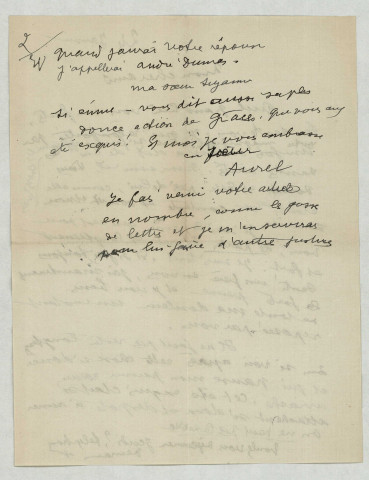 2
Quand j'aurai votre réponse
j'appellerai André Dumas.
ma sœur Suzanne
si émue – vous dit aussi sa plus
douce action de grâces, que vous avez
été exquis. Et moi je vous embrasse
en sœur
Aurel
Je fais venir votre article
en nombre, comme le
de lettres et je m'en servirai
pour lui faire d'autres